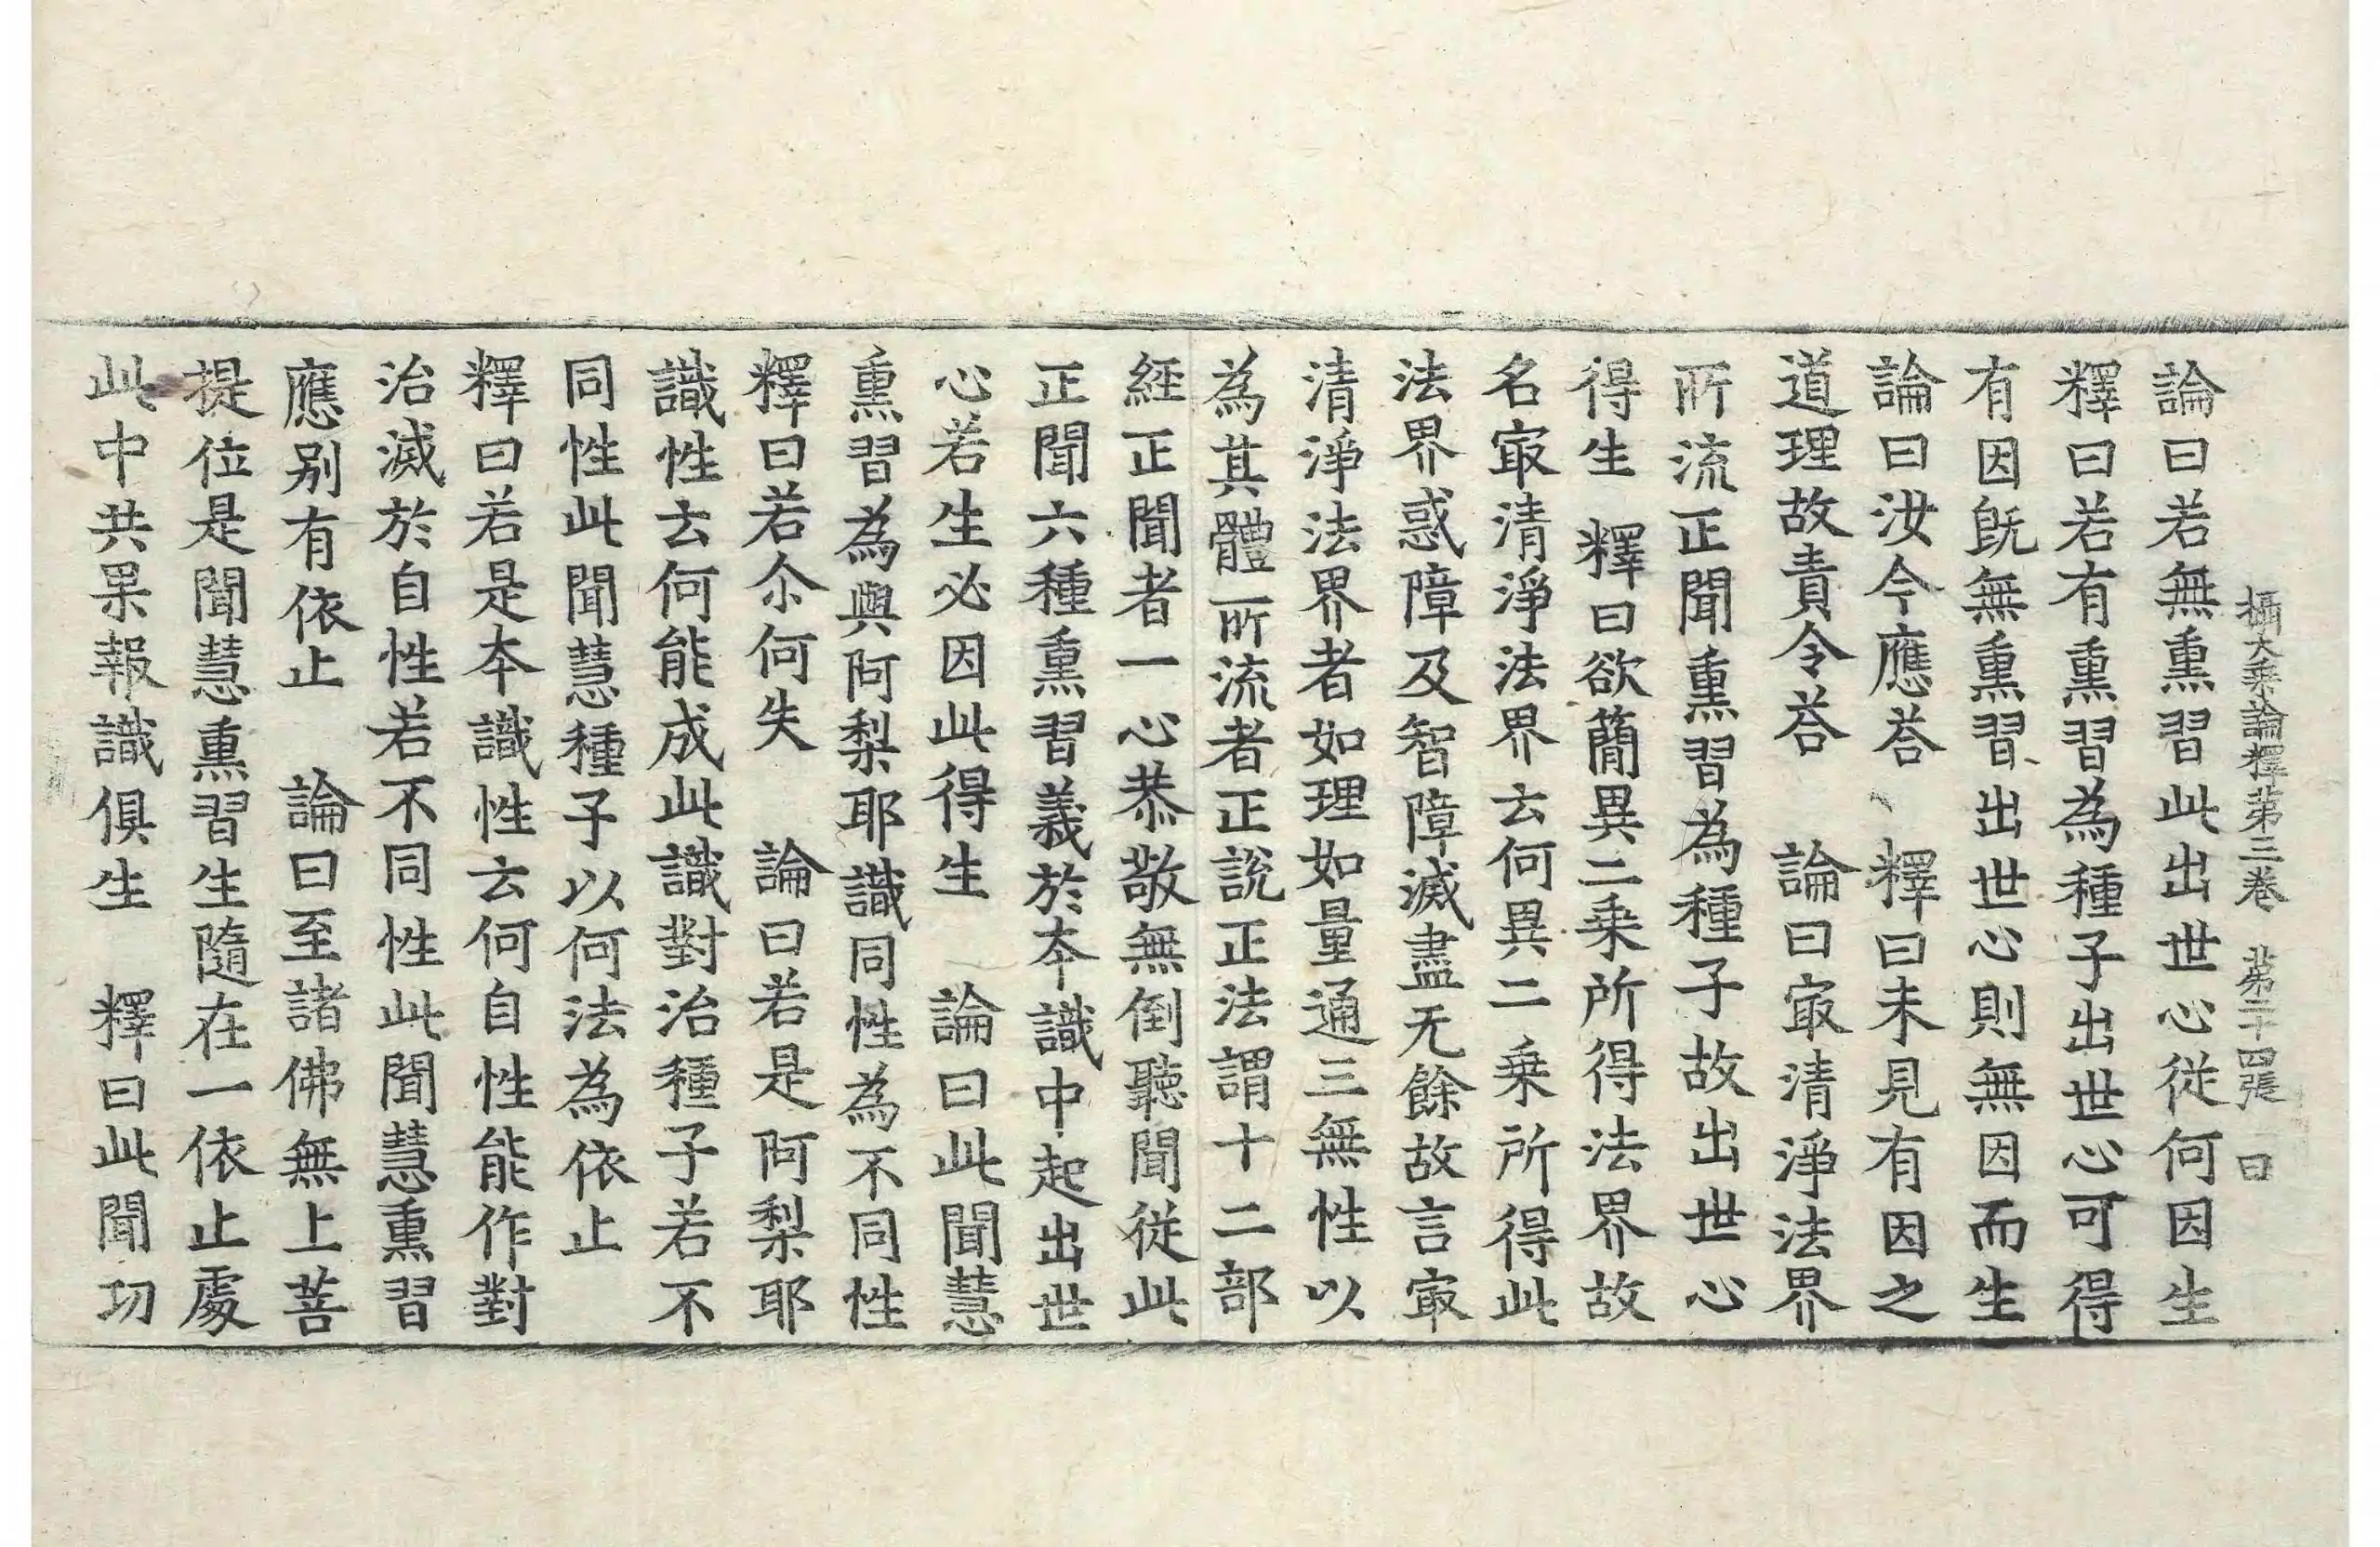 攝大乘論釋第三卷　第二十四張　曰
論曰若無熏習此出世心從何因生
釋曰若有熏習為種子出世心可得
有因旣無熏習出世心則無因而生
論曰汝今應荅　釋曰未見有因之
道理故責令荅　論曰㝡清淨法界
所流正聞熏習為種子故出世心
得生　釋曰欲簡異二乘所得法界故
名㝡清淨法界云何異二乘所得此
法界惑障及智障滅盡无餘故言㝡
清淨法界者如理如量通三無性以
為其體所流者正說正法謂十二部
經正聞者一心恭敬無倒聽聞從此
正聞六種熏習義於本識中起出世
心若生必因此得生　論曰此聞慧
熏習為與阿梨耶識同性為不同性
釋曰若尒何失　論曰若是阿梨耶
識性云何能成此識對治種子若不
同性此聞慧種子以何法為依止
釋曰若是本識性云何自性能作對
治滅於自性若不同性此聞慧熏習
應別有依止　論曰至諸佛無上菩
提位是聞慧熏習生隨在一依止處
此中共果報識俱生　釋曰此聞功